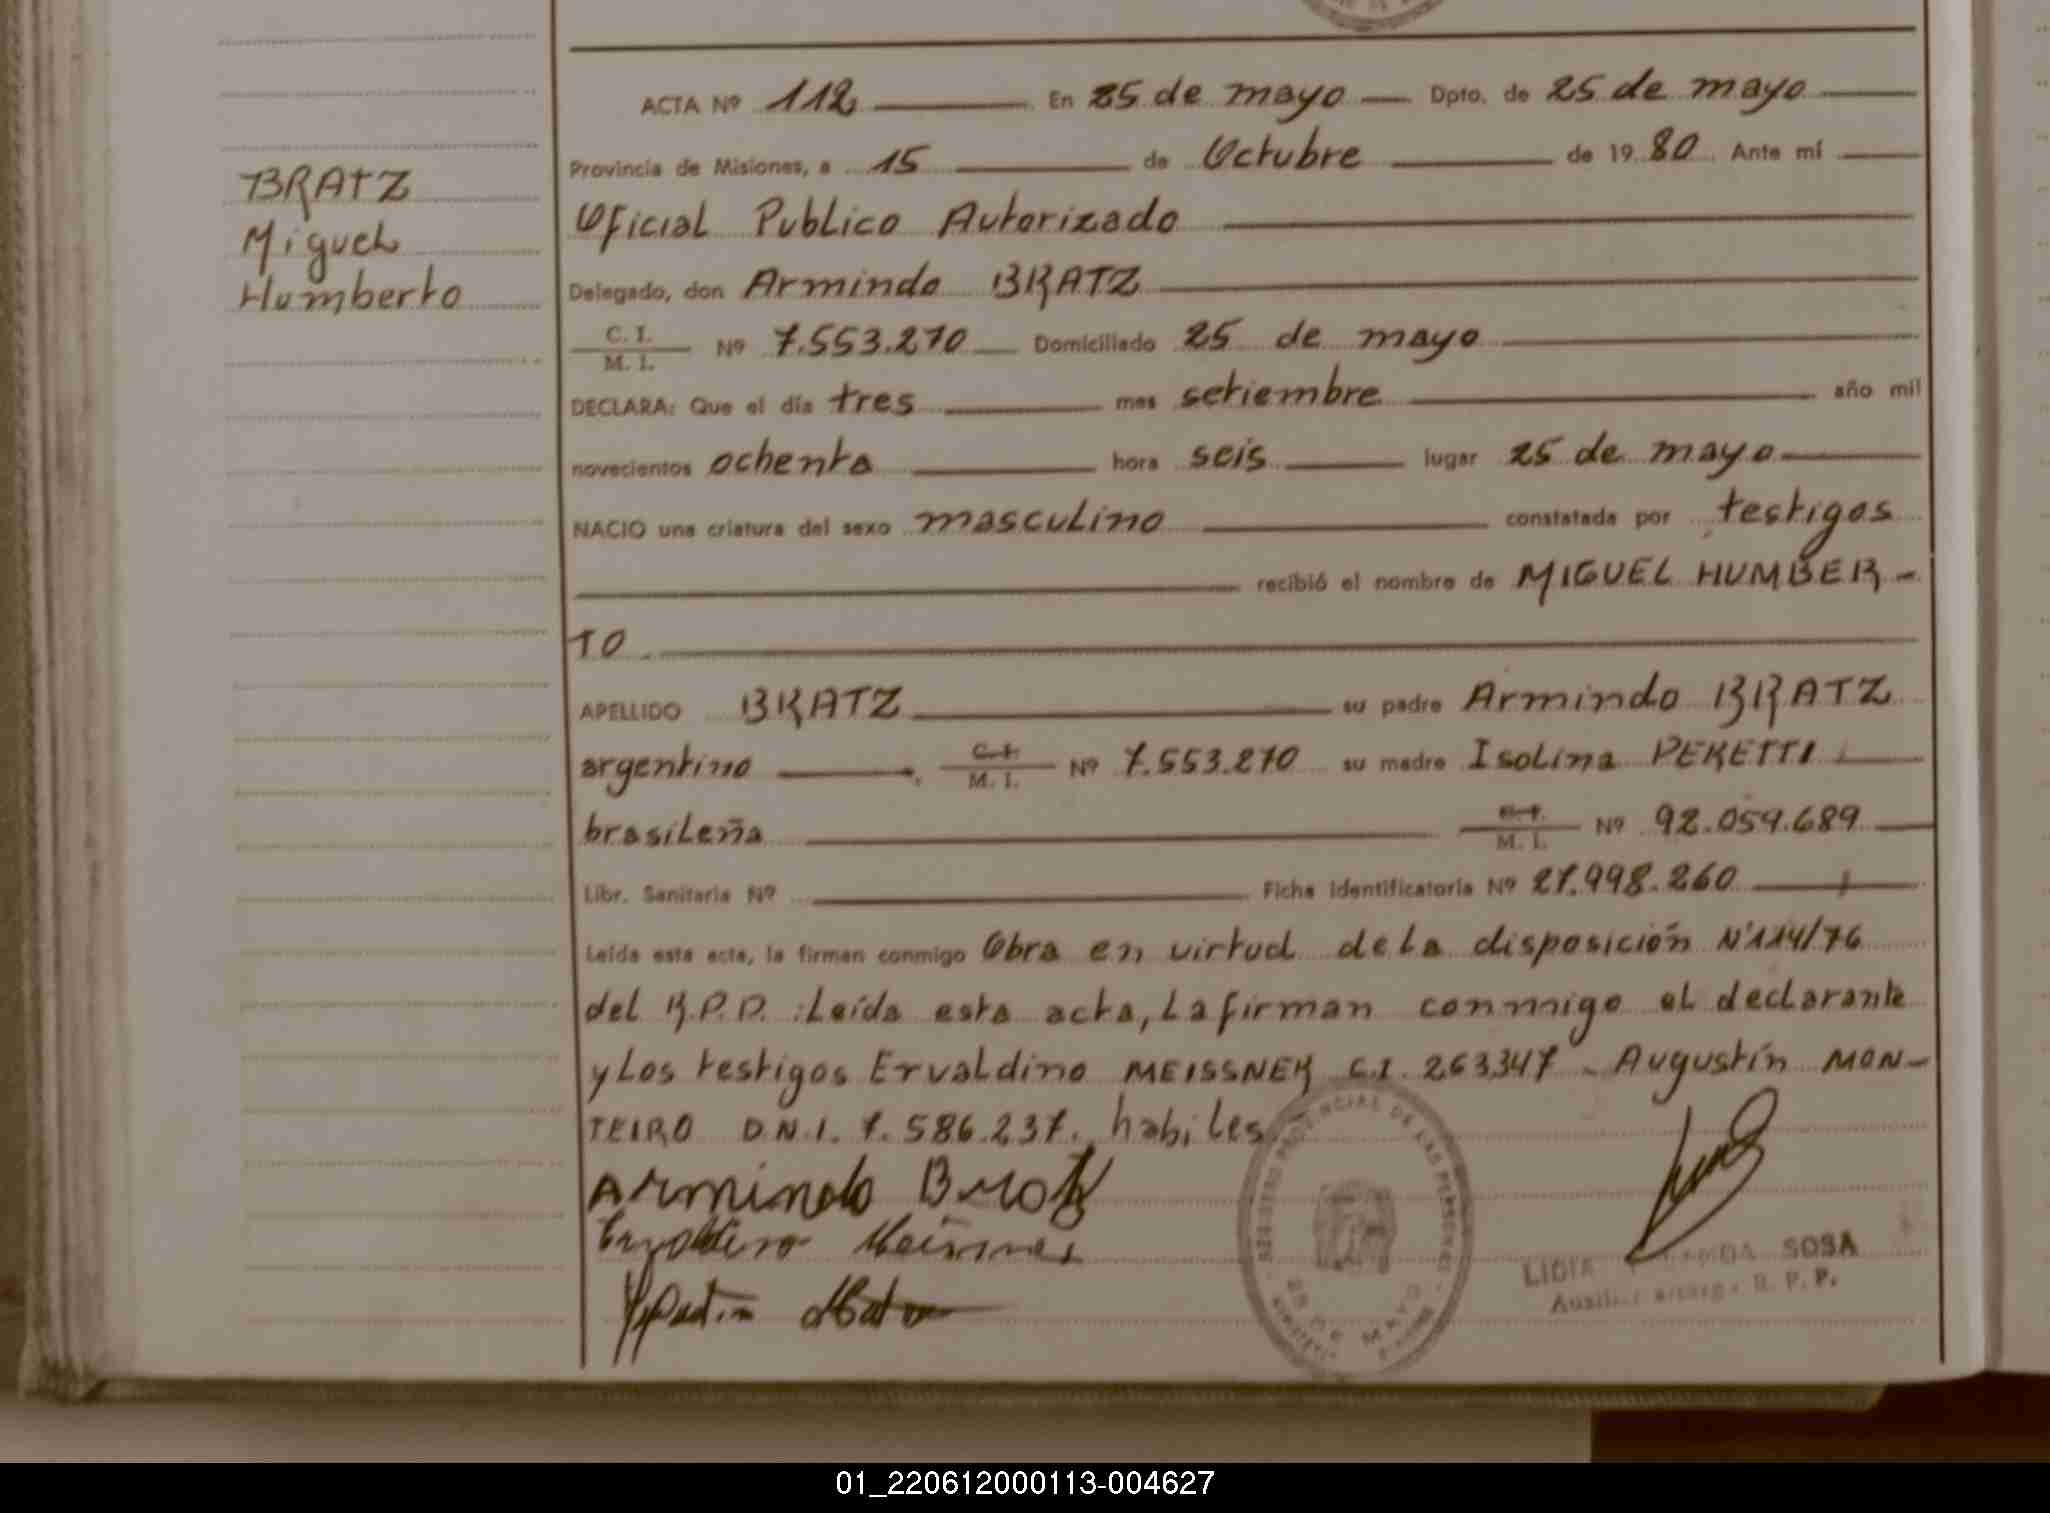 BRATZ
Miguel
Humberto
ACTA Nº 112 En 25 de mayo Dpto. de 25 de mayo
Provincia de Misiones, a 15 de Octubre de 1980 Ante mí
Oficial Publico Autorizado
Delegado, don Armindo BRATZ
C. I.
M. I. Nº 7.553.270 Domiciliado 25 de mayo
DECLARA: Que el día tres mes setiembre año mil
novecientos ochenta hora seis lugar 25 de mayo
NACIO una criatura del sexo masculino constatada por testigos
recibió el nombre de MIGUEL HUMBER-
TO
APELLIDO BRATZ su padre Armindo BRATZ
argentino C. I. M. I. Nº 7.553.270 su madre Isolina PERETTI
brasileña C. I. M. I. Nº 92.059.689
Libr. Sanitaria Nº Ficha Identificatoria Nº 27.998.260
Leída esta acta, la firman conmigo Obra en virtud de la disposición Nº 114/76
del R.P.P. :Leída esta acta, la firman conmigo el declarante
y Los testigos Ervaldino MEISSNER C.I. 263347 - Augustín MON-
TEIRO D.N.I. 7.586.237. habiles
Armindo Bratz
Ervaldino Meissner
REGISTRO PROVINCIAL DE LAS PERSONAS
25 DE MAYO
LIDIA SOSA
R. P. P.
01_220612000113-004627